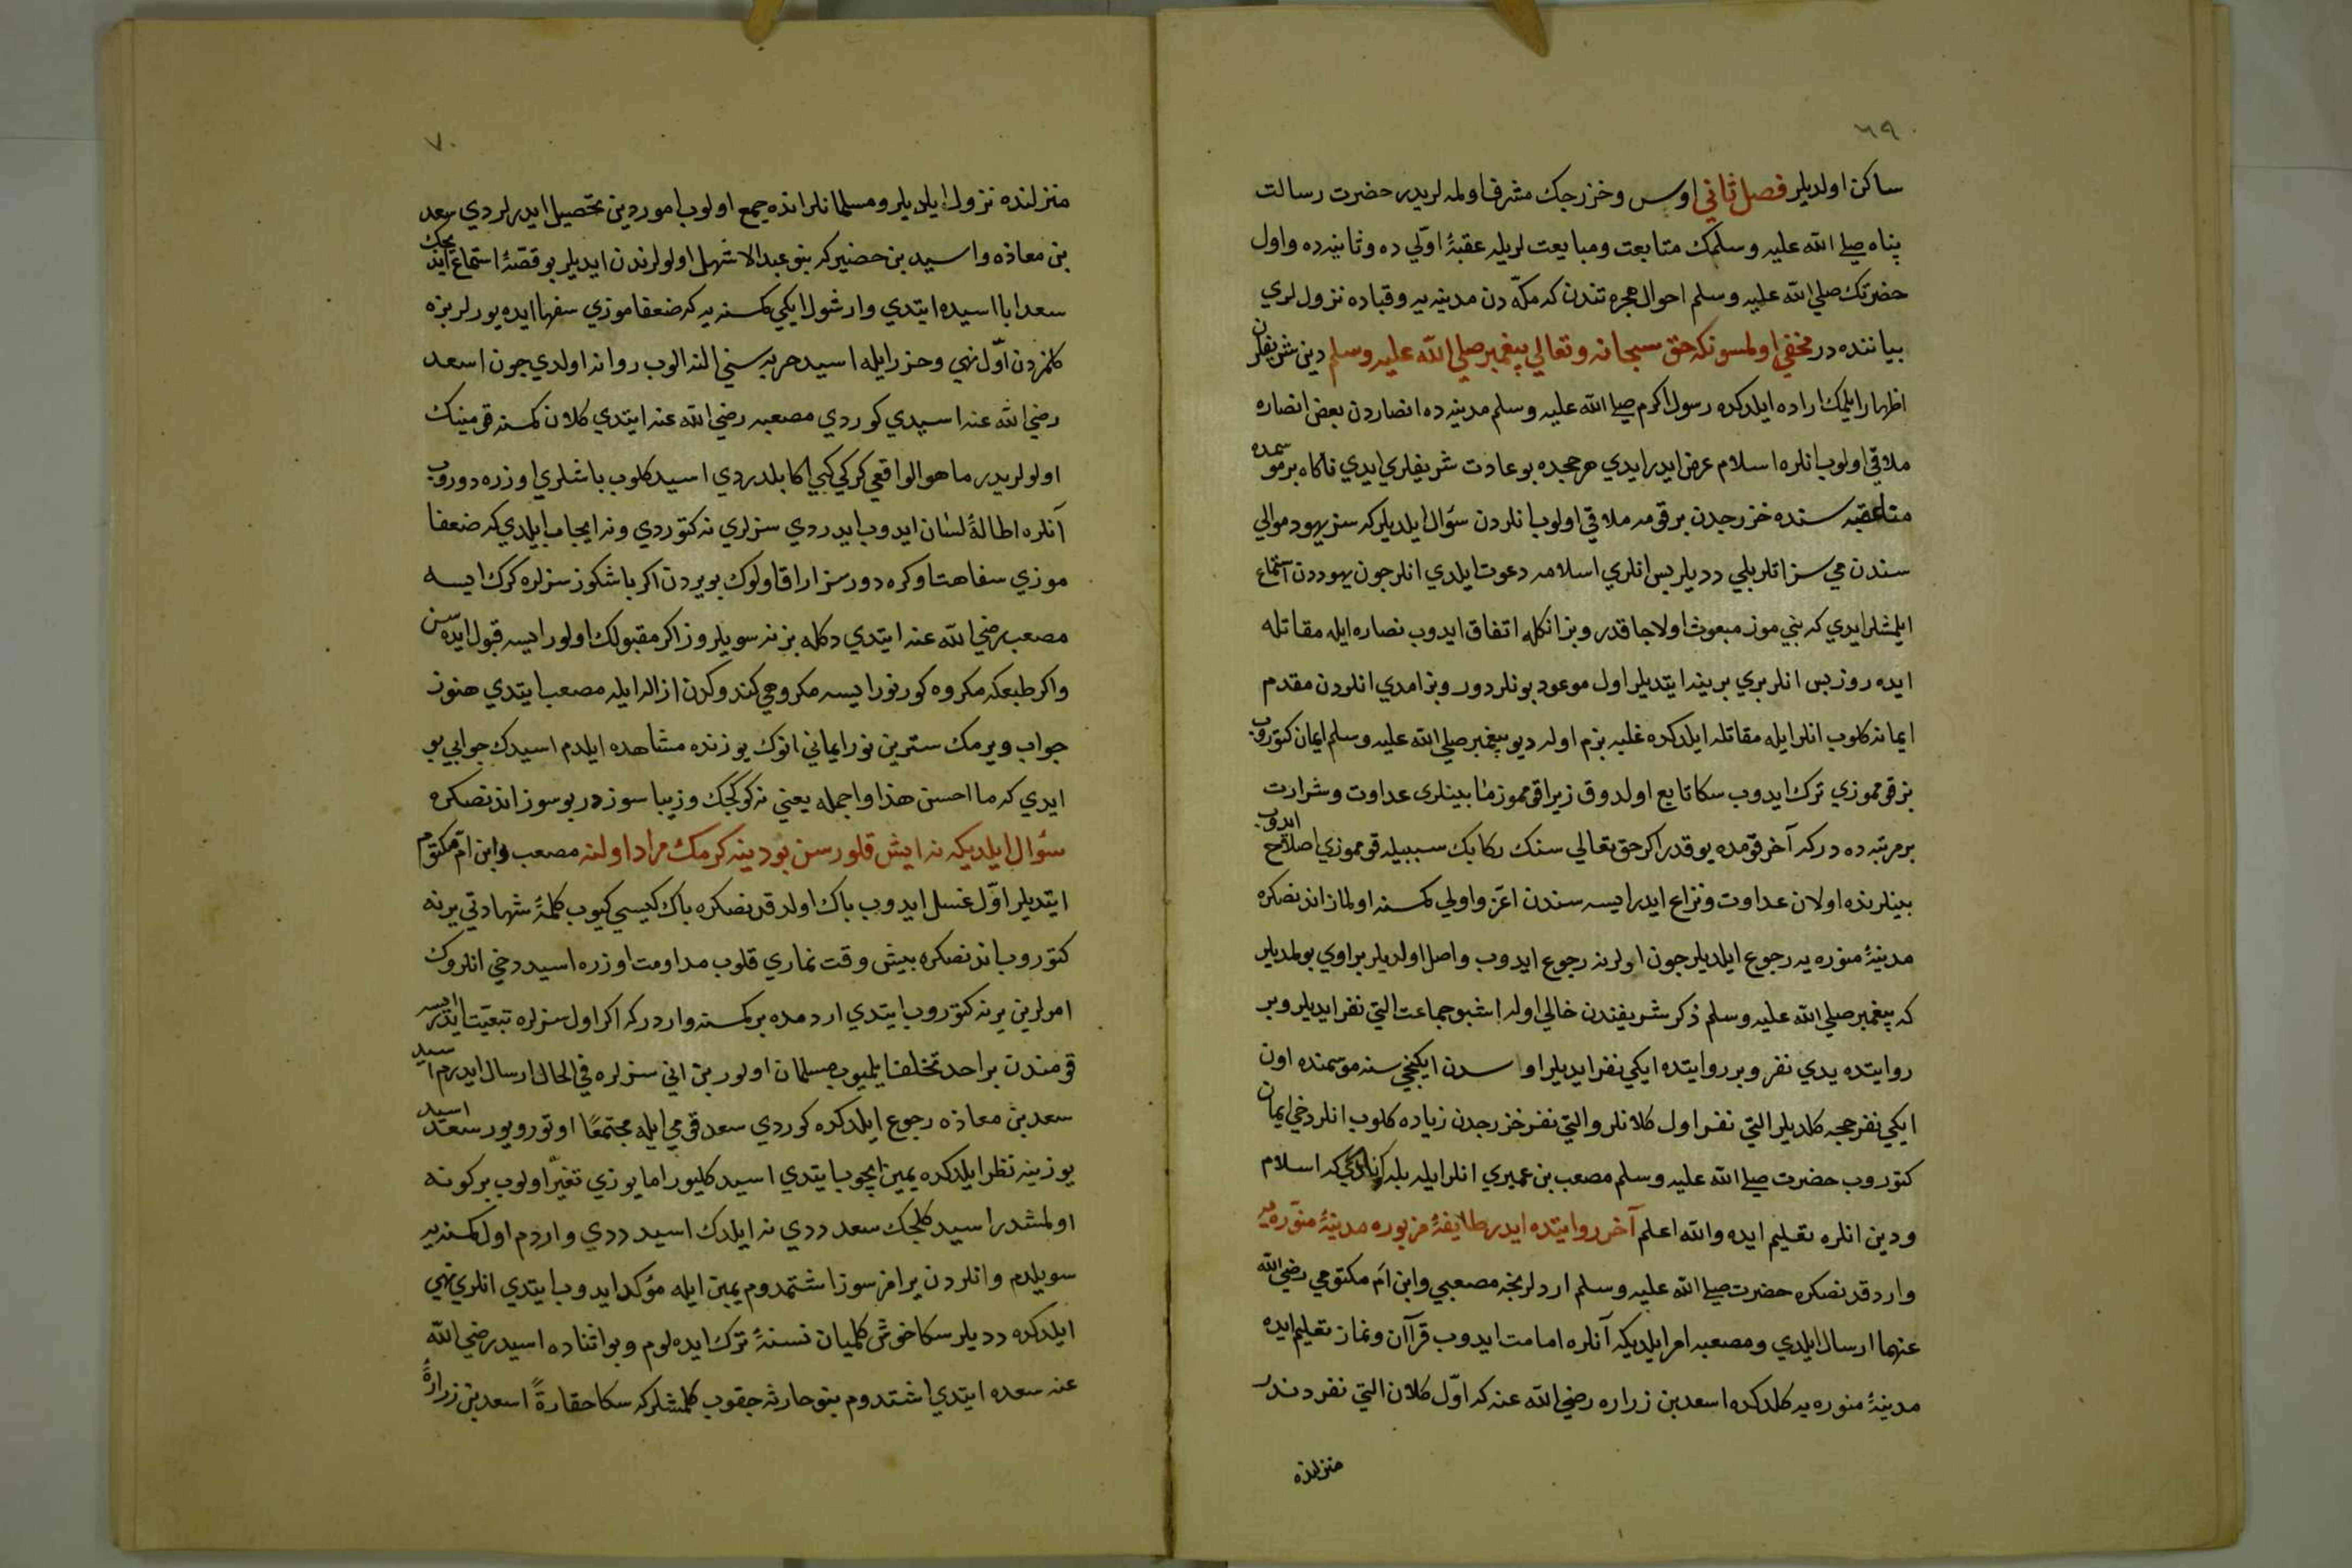 ٦٩
ساكن اولديلر فصل ثاني اوس وخزرجك مشرف اولمه لريدر حضرت رسالت
پناه صلى الله عليه وسلمك متابعت ومبايعت لريله عقبۀ اوّلي ده وثانيه ده واول
حضرتك صلي الله عليه وسلم احوال هجرتندن كه مكّه دن مدينه يه وقباده نزول لري
بياننده در مخفي اولمسونكه حق سبحانه وتعالي پيغمبر صلي الله عليه وسلم دين شريفلرن
اظهار ايلمك اراده ايلدكده رسول اكرم صلى الله عليه وسلم مدينه ده انصاردن بعض انصاره
ملاقي اولوب انلره اسلام عرض ايدر ايدي هر حجده بو عادت شريفلري ايدي ناكاه بر موسمده
متاعقبه سنده خزرجدن بر قومه ملاقي اولوب انلردن سؤال ايلديلر كه سز يهود موالي
سندن مي سز انلر بلي دديلر پس انلري اسلامه دعوت ايلدي انلر چون يهوددن استماع
ايلمشلر ايدي كه بني موز مبعوث اولاجاقدر وبز انكله اتفاق ايدوب نصاره ايله مقاتله
ايده روز پس انلر بري برينه ايتديلر اول موعود بونلردور وبز امدي انلردن مقدم
ايمانه كلوب انلر ايله مقاتله ايلدكده غلبه بزم اوله ديو پيغمبر صلي الله عليه وسلم ايمان كتوروب
بز قوموزي ترك ايدوب سكا تابع اولدوق زيرا قوموز مابينلرى عداوت وشرارت
بر مرتبه ده در كه آخر قومده يوقدر اكر حق تعالي سنك ركابك سببيله قوموزي اصلاح ايدوب
بينلرنده اولان عداوت ونزاع ايدر ايسه سندن اعز واولي كمسنه اولماز اندنصكره
مدينۀ منوره يه رجوع ايلديلر چون اولرنه رجوع ايدوب واصل اولديلر بر اوي بولمديلر
كه پيغمبر صلي الله عليه وسلم ذكر شريفندن خالي اوله اشبو جماعت التي نفر ايديلر وبر
روايتده يدي نفر وبر روايتده ايكي نفر ايديلر اوسدن ايكنجي سنه موسمنده اون
ايكي نفر حجه كلديلر التي نفر اول كلانلر والتي نفر خزرجدن زياده كلوب انلر دخي ايمان
كتوروب حضرت صلى الله عليه وسلم مصعب بن عميري انلر ايله بله كه اسلام
ودين انلره تعليم ايده والله اعلم آخر روايتده ايدر طايفۀ مزبوره مدينۀ منوّره يه
وارد قدنصكره حضرت صلى الله عليه وسلم اردلرنجه مصعبي وابن ام مكتومي رضي الله
عنهما ارسال ايلدي ومصعبه امر ايلديكه آنلره امامت ايدوب قرآن ونماز تعليم ايده
مدينۀ منوره يه كلدكده اسعد بن زراره رضي الله عنه كه اوّل كلان التي نفردندر
منزلنده
٧٠
منزلنده نزول ايلديلر ومسلمانلر انده جمع اولوب امور دين تحصيل ايدرلردي سعد
بن معاذه واسيد بن حضير كه بنو عبد الاشهل اولولرندن ايديلر بو قصۀ استماع ايديجك
سعد ابا اسيده ايتدي وار شول ايكي كمسنه يه كه ضعفاموزي سفها ايده يورلر بزه
كلمزدن اوّل نهي وحزر ايله اسيد حربه سني النه الوب روانه اولدي چون اسعد
رضي الله عنه اسيدي كوردي مصعبه رضي الله عنه ايتدي كلان كمسنه قومينك
اولولريدر ما هو الواقعي كركي كبي اكا بلدردي اسيد كلوب باشلري اوزره دوروب
آنلره اطالۀ لسان ايدوب ايدردي سزلري نه كتوردي ونه ايجاب ايلدي كه ضعفا
موزي سفاهتا وكره دورسز اراق اولوك بو يردن اكر باشكوز سزلره كرك ايسه
مصعب رضي الله عنه ايتدي دكله بز نه سويلروز اكر مقبولك اولور ايسه قبول ايده سن
واكر طبعكه مكروه كورنور ايسه مكروهي كندوكدن ازاله ايله مصعب ايتدي هنوز
جواب ويرمك سترين نور ايماني انوك يوزنده مشاهده ايلدم اسيدك جوابي بو
ايدي كه ما احسن هذا واجمله يعني نه كوكچك وزيبا سوزدر بو سوز اندنصكره
سؤال ايلديكه نه ايش قلورسن بو دينه كرمك مراد اولنه مصعب وابن امّ مكتوم
ايتديلر اوّل غسل ايدوب پاك اولدقدنصكره پاك كيسي كيوب كلمۀ شهادتي يرنه
كتوروب اندنصكره بيش وقت نمازي قلوب مداومت اوزره اسيد دخي انلروك
امرلرين يرنه كتوروب ايتدي اردمده بر كمسنه واردر كه اكر اول سزلره تبعيت ايدر ايسه
قومندن بر احد تخلف ايلميوب مسلمان اولور بن اني سزلره في الحال ارسال ايدرم اسيد
سعد بن معاذه رجوع ايلدكده كوردي سعد قومي ايله مجتمعا اوتورويور سعد اسيد
يوزينه نظر ايلدكده يمين ايچوب ايتدي اسيد كليور اما يوزي تغيّر اولوب بر كونه
اولمشدر اسيد كلجك سعد ددي نه ايلدك اسيد ددي واردم اول كمسنه يه
سويلدم وانلردن يرامز سوز اشتمدوم يمين ايله مؤكد ايدوب ايتدي انلري نهي
ايلدكده دديلر سكا خوش كلميان نسنۀ ترك ايده لوم وبو اثناده اسيد رضي الله
عنه سعده ايتدي اشتدوم بنو حارثه چقوب كلمشلر كه سكا حقارةً اسعد بن زرارۀ